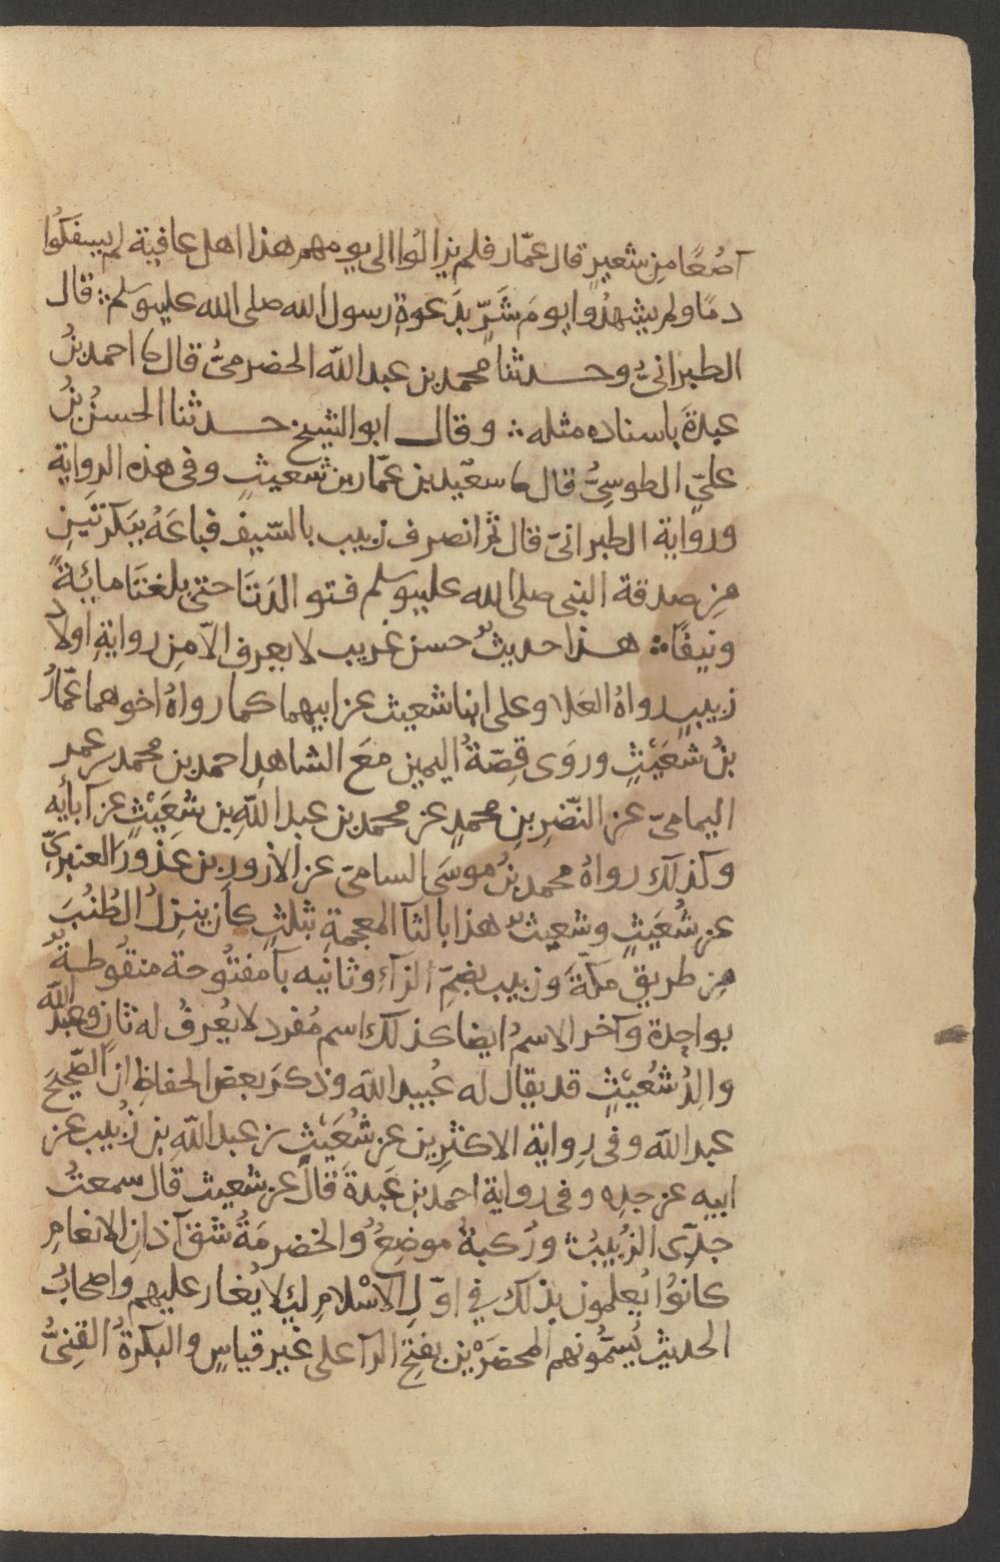 آصُعًا مِن شعيرٍ قال عمّار فلم يزالُوا الى يومهم هذا اهل عافية لم يسفكُوا
دمًا ولم يشهدُوا يومَ شَرّ بدَعوةِ رسول الله صلى الله عليه وسلم ∴ قال
الطبرانىُّ وحدثنا محمد بن عبد الله الحضرمىُّ قال نا احمد بنُ
عبدةَ باسناده مثله ∴ وقال ابو الشيخ حدثنا الحسنُ بنُ
علىّ الطوسِىُّ قال نا سعيد بن عمّار بن شعيثٍ وفى هذه الرواية
ورواية الطبرانىّ قال ثم انصرف زبيب بالسّيف فباعَهُ ببَكرتَينِ
مِن صدقة النبى صلى الله عليه وسلم فتوالدَتَا حتى بلغتَا مائةً
ونيفًا ∴ هذا حديثٌ حسن غريب لا يعرف الّا مِن روايةِ اولاد
زبيبٍ رواهُ العَلا وعلى ابنا شعيث عن ابيهما كما رواهُ اخوهما عمّارُ
بنُ شعَيْثٍ وروَى قِصّةُ اليمين معَ الشاهدِ احمد بن محمد بن عمر
اليمامىّ عن النّضرِ بنِ محمدٍ عن محمد بن عبد اللّهِ بن شُعَيْثٍ عن آبائِه
وكذلك رواهُ محمد بنُ موسَى السامىّ عن الازورِ بن عَذورَ العنبرىِّ
عن شُعَيثٍ وشعيثٌ هذا بالثآ المعجمةِ بثلثٍ كان ينزلُ الطُنُبَ
مِن طريقِ مكّةَ وزبيب بضمّ الزآءِ وثانيه بآ مفتُوحة منقُوطةٌ
بواحِدة وآخر الاسمُ ايضا كذلك اسم مُفرد لا يُعرفُ له ثانٍ وعبد الله
والِدُ شُعيْثٍ قد يقال له عُبيد الله وذكرَ بعض الحفاظِ انّ الصّحيحَ
عبد الله وفى رِواية الاكثرِين عن شُعَيْثٍ بن عبد اللّهِ بن زُبيب عن
ابيه عن جدِه وفى رواية احمد بن عَبدةَ قالَ عن شُعيث قال سمعتُ
جدّى الزُبيبُ ورُكبةُ موضِعٌ والخضرمَةُ شقّ آذانِ الانعامِ
كانوُا يُعلمون بذلك فى اوّلِ الاسْلامِ لئلا يُغار عليهم واصحابُ
الحديث يُسَمُّونهم المحضرَمْين بفتحِ الرآ على غير قياسٍ والبكرةُ القِنىُّ